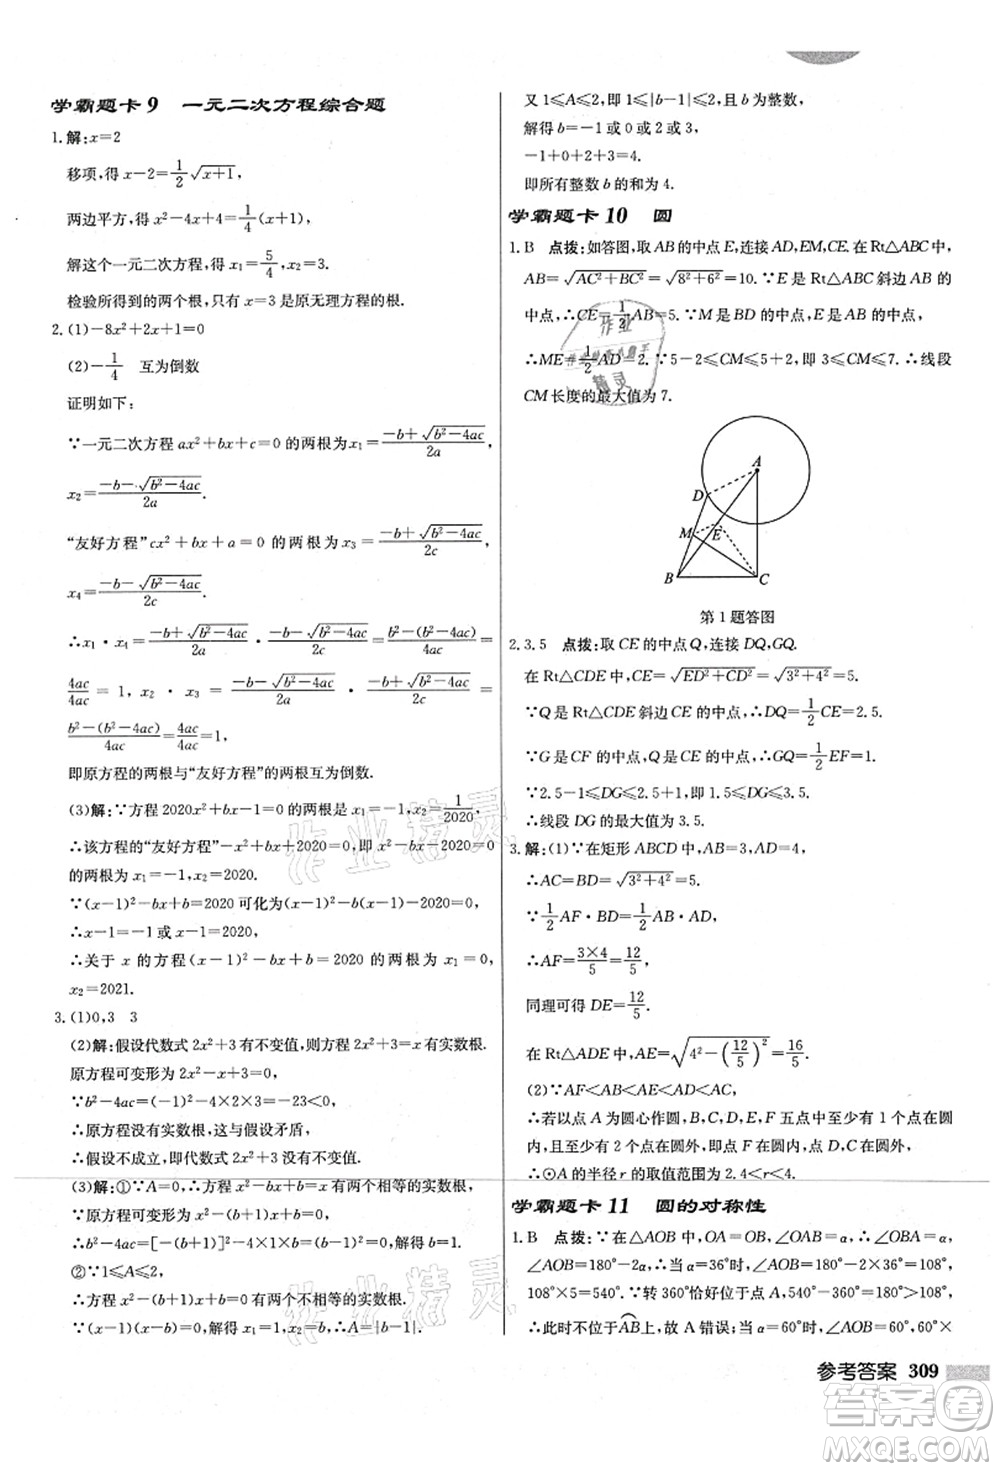 学霸题卡9 一元二次方程综合题
1.解:x=2
移项,得 x-2=\frac{1}{2}\sqrt{x+1},
两边平方,得 x²-4x+4=\frac{1}{4}(x+1),
解这个一元二次方程,得 x₁=\frac{5}{4},x₂=3.
检验所得到的两个根,只有 x=3 是原无理方程的根.
2.(1)-8x²+2x+1=0
(2)-\frac{1}{4} 互为倒数
证明如下:
∵一元二次方程 ax²+bx+c=0 的两根为x₁=\frac{-b+\sqrt{b²-4ac}}{2a},
x₂=\frac{-b-\sqrt{b²-4ac}}{2a}.
“友好方程”cx²+bx+a=0 的两根为 x₃=\frac{-b+\sqrt{b²-4ac}}{2c},
x₄=\frac{-b-\sqrt{b²-4ac}}{2c}.
∴x₁·x₄=\frac{-b+\sqrt{b²-4ac}}{2a}·\frac{-b-\sqrt{b²-4ac}}{2c}=\frac{b²-(b²-4ac)}{4ac}=
\frac{4ac}{4ac}=1, x₂·x₃=\frac{-b-\sqrt{b²-4ac}}{2a}·\frac{-b+\sqrt{b²-4ac}}{2c}=
\frac{b²-(b²-4ac)}{4ac}=\frac{4ac}{4ac}=1,
即原方程的两根与“友好方程”的两根互为倒数.
(3)解:∵方程 2020x²+bx-1=0 的两根是x₁=-1,x₂=\frac{1}{2020},
∴该方程的“友好方程”-x²+bx+2020=0
的两根为 x₁=-1,x₂=2020.
∵(x-1)²-bx+b=2020可化为(x-1)²-b(x-1)-2020=0,
∴x-1=-1 或x-1=2020,
∴关于 x 的方程(x-1)²-bx+b=2020 的两根为 x₁=0,
x₂=2021.
3.(1)0,3 3
(2)解:假设代数式 2x²+3 有不变值,则方程 2x²+3=x 有实数根.
原方程可变形为 2x²-x+3=0,
∵b²-4ac=(-1)²-4×2×3=-23<0,
∴原方程没有实数根,这与假设矛盾,
∴假设不成立,即代数式 2x²+3 没有不变值.
(3)解:①∵A=0,∴方程 x²-bx=x 有两个相等的实数根.
∵原方程可变形为 x²-(b+1)x=0,
∴b²-4ac=[-(b+1)]²-4×1×0=0,解得 b=-1.
②∵1≤A≤2,
∴方程 x²-(b+1)x+b=0 有两个不相等的实数根.
∵(x-1)(x-b)=0,解得 x₁=1,x₂=b,∴A=|b-1|.
又 1≤A≤2,即 1≤|b-1|≤2,且 b 为整数,
解得 b=-1 或 0 或 2 或 3.
-1+0+2+3=4.
即所有整数 b 的和为 4.
学霸题卡10 圆
1.B 点拨:如答图,取 AB 的中点 E,连接 AD,EM,CE.在 Rt△ABC 中,
AB=\sqrt{AC²+BC²}=\sqrt{8²+6²}=10.∵E 是 Rt△ABC 斜边 AB 的
中点,∴CE=\frac{1}{2}AB=5.∵M 是 BD 的中点,E 是 AB 的中点,
∴ME=\frac{1}{2}AD=2.∵5-2≤CM≤5+2,即 3≤CM≤7.∴线段
CM 长度的最大值为 7.
A
D
M
E
B
C
第1题答图
2.3.5 点拨:取 CE 的中点 Q,连接 DQ,GQ.
在 Rt△CDE 中,CE=\sqrt{ED²+CD²}=\sqrt{3²+4²}=5.
∵Q 是 Rt△CDE 斜边 CE 的中点,∴DQ=\frac{1}{2}CE=2.5.
∵G 是 CF 的中点,∴GQ=\frac{1}{2}EF=1.
∵2.5-1≤DG≤2.5+1,即 1.5≤DG≤3.5.
∴线段 DG 的最大值为 3.5.
3.解:(1)∵在矩形 ABCD 中,AB=3,AD=4,
∴AC=BD=\sqrt{3²+4²}=5.
∵\frac{1}{2}AF·BD=\frac{1}{2}AB·AD,
∴AF=\frac{3×4}{5}=\frac{12}{5}.
同理可得 DE=\frac{12}{5}.
在 Rt△ADE 中,AE=\sqrt{4²-(\frac{12}{5})²}=\frac{16}{5}.
(2)∵AF<AB<AE<AD<AC,
∴若以点 A 为圆心作圆,B,C,D,E,F 五点中至少有 1 个点在圆
内,且至少有 2 个点在圆外,即点 F 在圆内,点 D,C 在圆外,
∴⊙A 的半径 r 的取值范围为 2.4<r<4.
学霸题卡11 圆的对称性
1.B 点拨:∵在△AOB 中,OA=OB,∠ABO=α,∴∠OAB=∠OBA=α,
∠AOB=180°-2α,∴当α=36°时,∠AOB=180°-2×36°=108°,
108°×5=540°.∵转 360°恰好可以作 2 个直径,即 2×180°=360°,
∴此时不位于AB上,故 A 错误;当α=60°时,∠AOB=60°,60°×
参考答案 309
作业精灵
答案圈
MXQE.COM